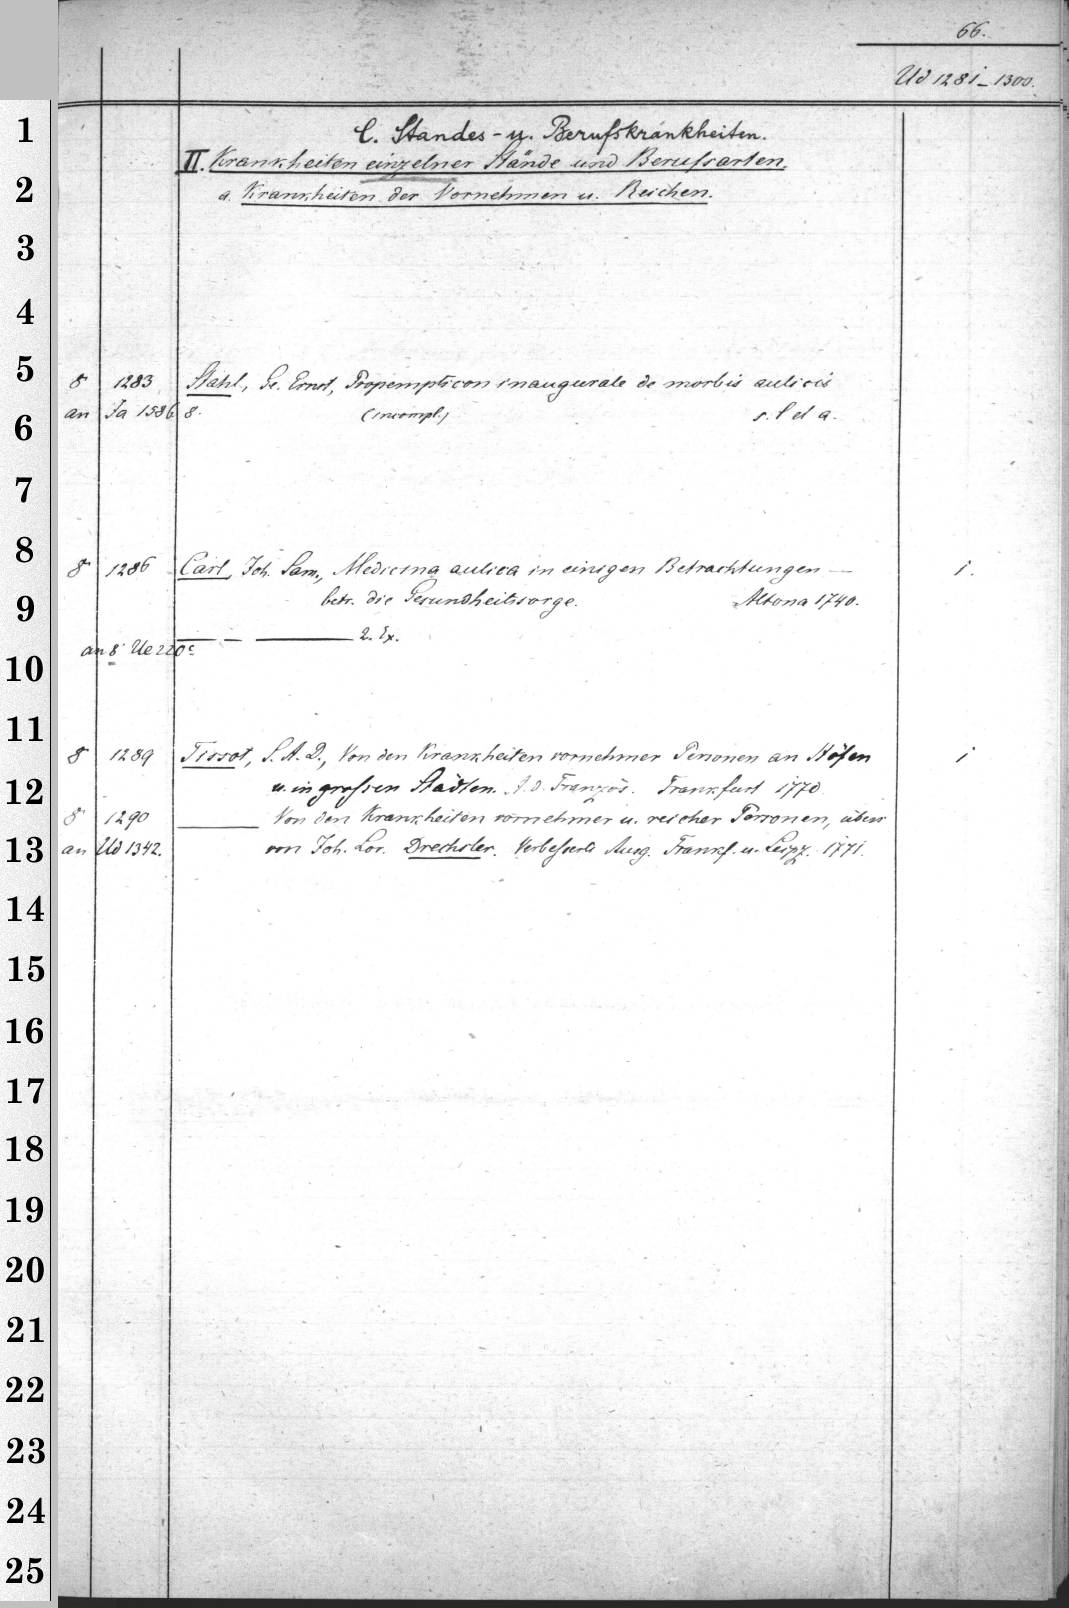 66.
Ud 1281-1300.
C. Standes- u. Berufskrankheiten.
II. Krankheiten einzelner Stände und Berufsarten.
a. Krankheiten der Vornehmen u. Reichen.
8 1283 Stahl, Ge. Ernst, Propempticon inaugurale de morbis aulicis
an Ja 1586 8. (incompl.) s. l et a.
8 1286 Carl, Joh. Sam., Medicina aulica in einigen Betrachtungen — 1.
betr. die Gesundheitssorge. Altona 1740.
an 8° Ue 220c — — — 2. Ex.
8 1289 Tissot, S. A. D., Von den Krankheiten vornehmer Personen an Höfen 1
u. in grossen Städten. A. d. Französ. Frankfurt 1770
8 1290 — Von den Krankheiten vornehmer u. reicher Personen, übers
an Ud 1342. von Joh. Lor. Drechsler. Verbesserte Ausg. Frankf. u. Leipz. 1771.
1
2
3
4
5
6
7
8
9
10
11
12
13
14
15
16
17
18
19
20
21
22
23
24
25